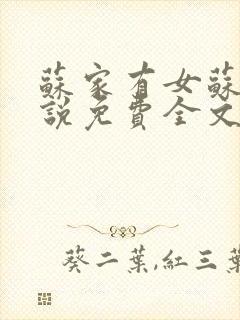 蘇家有女蘇
說免費全文
葵二葉,紅三葉